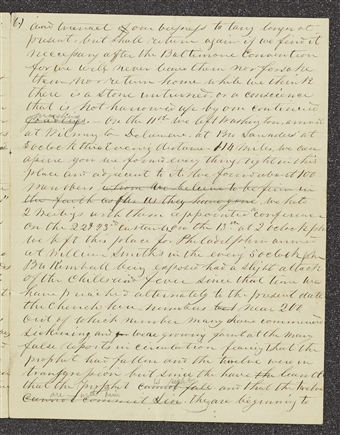 and we need not our buyness to tary longer at
present, but shall return again if we find it
necessary after the Baltimore Convention
for we will never leave them nor forsake
them nor return home while we think
there is a stone unturned or a conscience
that is not harrowed up by our continued
On the 11th we left Washington, arrived
at Wilmington Delaware, at Bro Saunders at
5 oclock this Evening distance 114 Miles, we can
assure you we found every thing right in this
place and adjacent to it. We found about 100
Members whom we believe to be firm in
the faith as far as they have gone. we held
2 Meetings with them appointed conference
on the 22d & 23d instant on the 13th at 2 oclock pm
We left this place for Philadelphia arrived
at William Smiths in the evening 5 oclock
B. Kimball being exposed had a slight attack
of the chills and fever since that time we
have preached alternately to the present date
the church here numbers near 200
out of which number many have commenced
sickening and were growing faint at the many
false reports in circulation, fearing that the
prophet had fallen and the twelve were in
transgression but since the have learnt
that the prophet is not cannot fall and that the twelve
are with him
cannot commit sin, they are beginning to